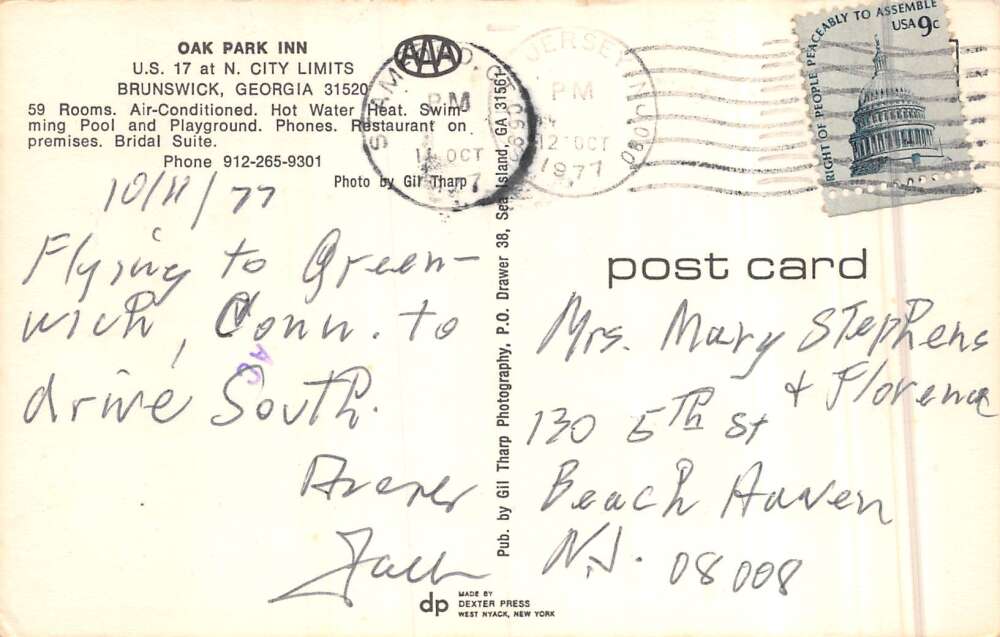 OAK PARK INN
U.S. 17 at N. CITY LIMITS
BRUNSWICK, GEORGIA 31520
59 Rooms. Air-Conditioned. Hot Water Heat. Swim-
ming Pool and Playground. Phones. Restaurant on
premises. Bridal Suite.
Phone 912-265-9301
Photo by Gil Tharp
AAA
PM
11 OCT
JERSEY NJ 080
PM
12 OCT
1977
RIGHT OF PEOPLE PEACEABLY TO ASSEMBLE
USA 9c
10/11/77
Flying to Green-
wich, Conn. to
drive South.
Jack
Pub. by Gil Tharp Photography, P.O. Drawer 38, Sea Island, GA 31561
post card
Mrs. Mary Stephens
+ Florence
130 5th St
Beach Haven
N.J. 08008
dp
MADE BY
DEXTER PRESS
WEST NYACK, NEW YORK